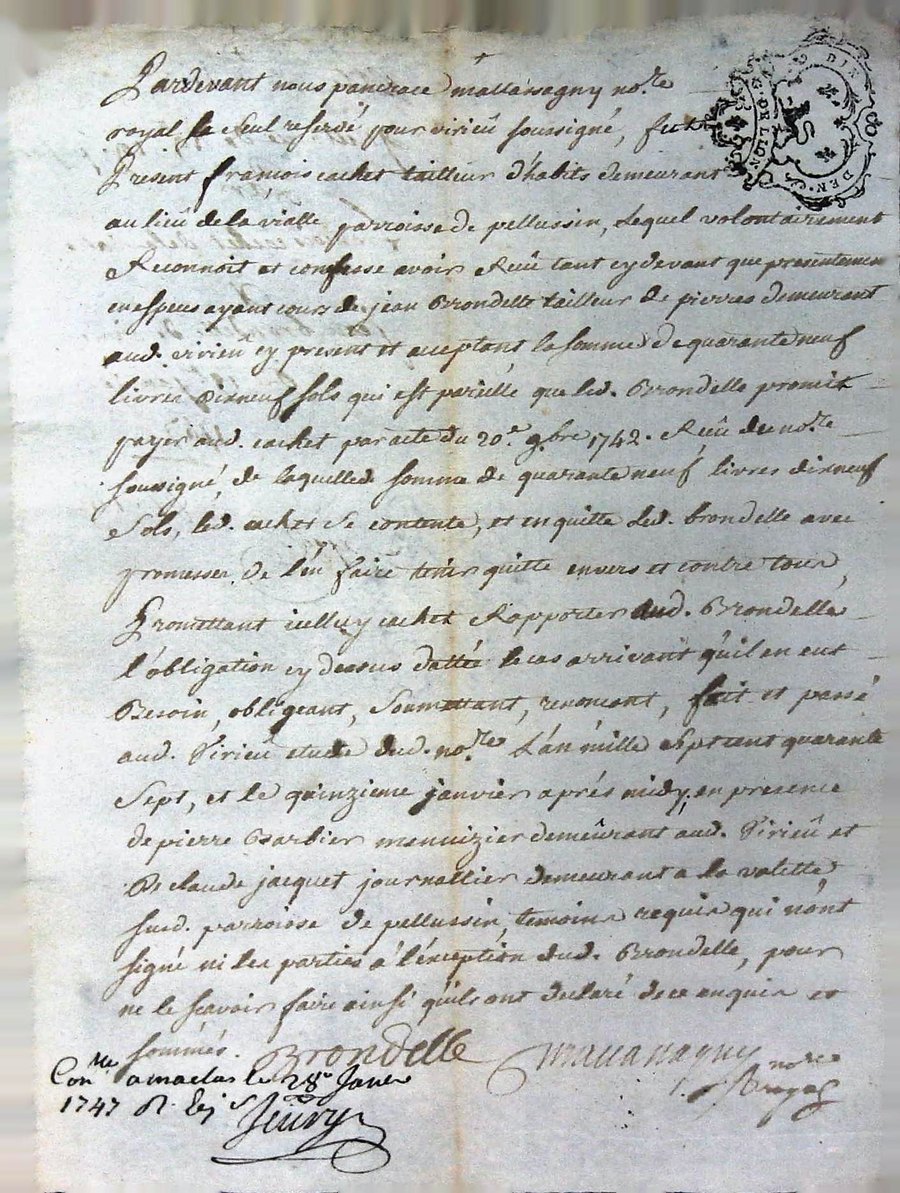 Pardevant nous pancrace mallassagny no.re
royal le seul reservé pour virieû soussigné, fut
Present françois cachet tailleur d'habits demeurant
au lieû de la vialle parroisse de pellussin, Lequel volontairement
Reconnoit et confesse avoir Reçû tant cy devant que presentement
en especes ayant cours de jean Brondelle tailleur de pierres demeurant
aud. virieû cy present et aceptant la somme de quarante neuf
livres dixneuf sols qui est pareille que led. Brondelle promit
payer aud. cachet par acte du 20.e 9.bre 1742. Reçû du no.re
soussigné, de laquelle somme de quarante neuf livres dixneuf
sols, led. cachet se contente, et en quitte led. brondelle avec
promesses de l'en faire tenir quitte envers et contre tous,
Promettant icelluy cachet Rapporter aud. Brondelle
l'obligation cy dessus dattée le cas arrivant qu'il en eut
Besoin, obligeant, soumettant, renonçant, fait et passé
aud. Virieû etude dud. no.re L'an mille sept cent quarante
Sept, et le quinzieme janvier après midy, en presence
de pierre Barbier menuizier demeûrant aud. Virieû et
De claude jacquet journallier demeurant a la valette
sud. parroisse de pellussin, temoins requis qui n'ont
signé ni les parties à l'exception dud. Brondelle, pour
ne le scavoir faire ainsi qu'ils ont declaré de ce enquis et
sommés. Brondelle mallassagny
no.re
Con.lle a maclas le 28e Janv
1747 R.